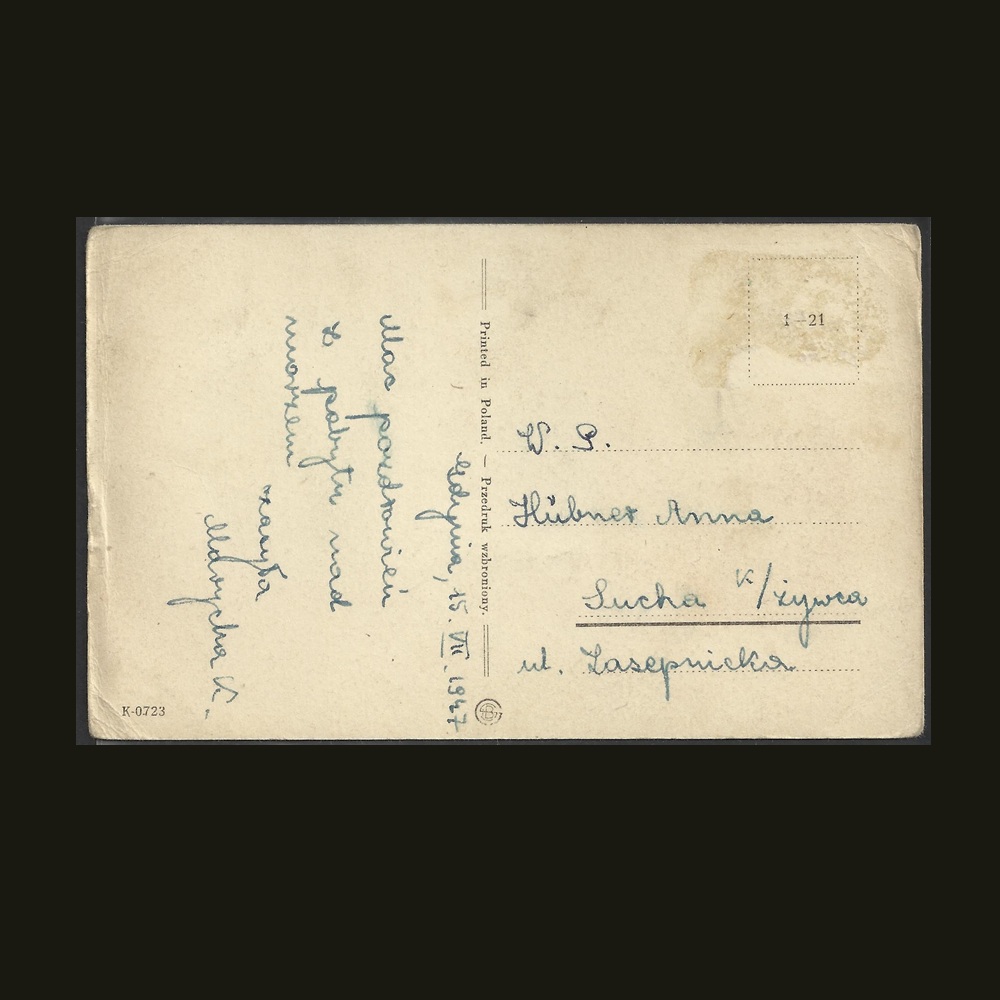 Gdynia, 15. VII. 1947
Moc pozdrowień
z pobytu nad
morzem
zasyła
K.
Printed in Poland. — Przedruk wzbroniony.
K-0723
1—21
W. P.
Hübner Anna
Sucha k/żywca
ul. Zasepnicka